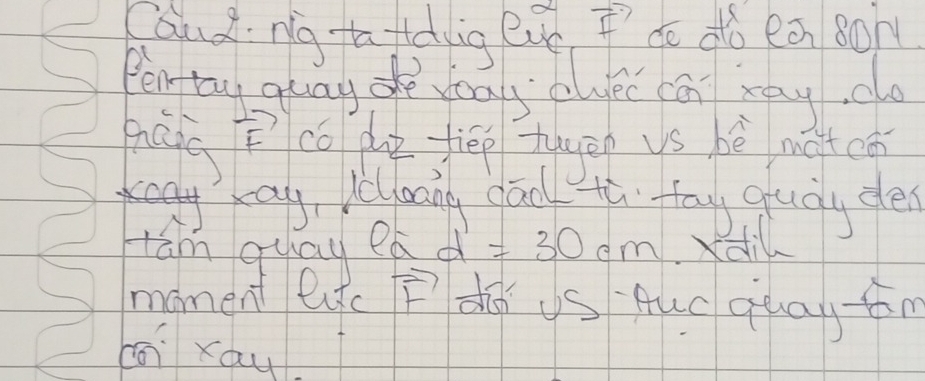 Câu 2. Ng ta tdụg lực F có độ lớn 80N
lên tay quay để xoay chiếc cối xay. cho
rằng F có phg tiếp tuyến vs bề mặt cối
xoay xay, khoảng cách từ tay quay đến
tâm quay là d = 30 cm. Xđịh
moment lực F đối vs trục quay tâm
cối xay.